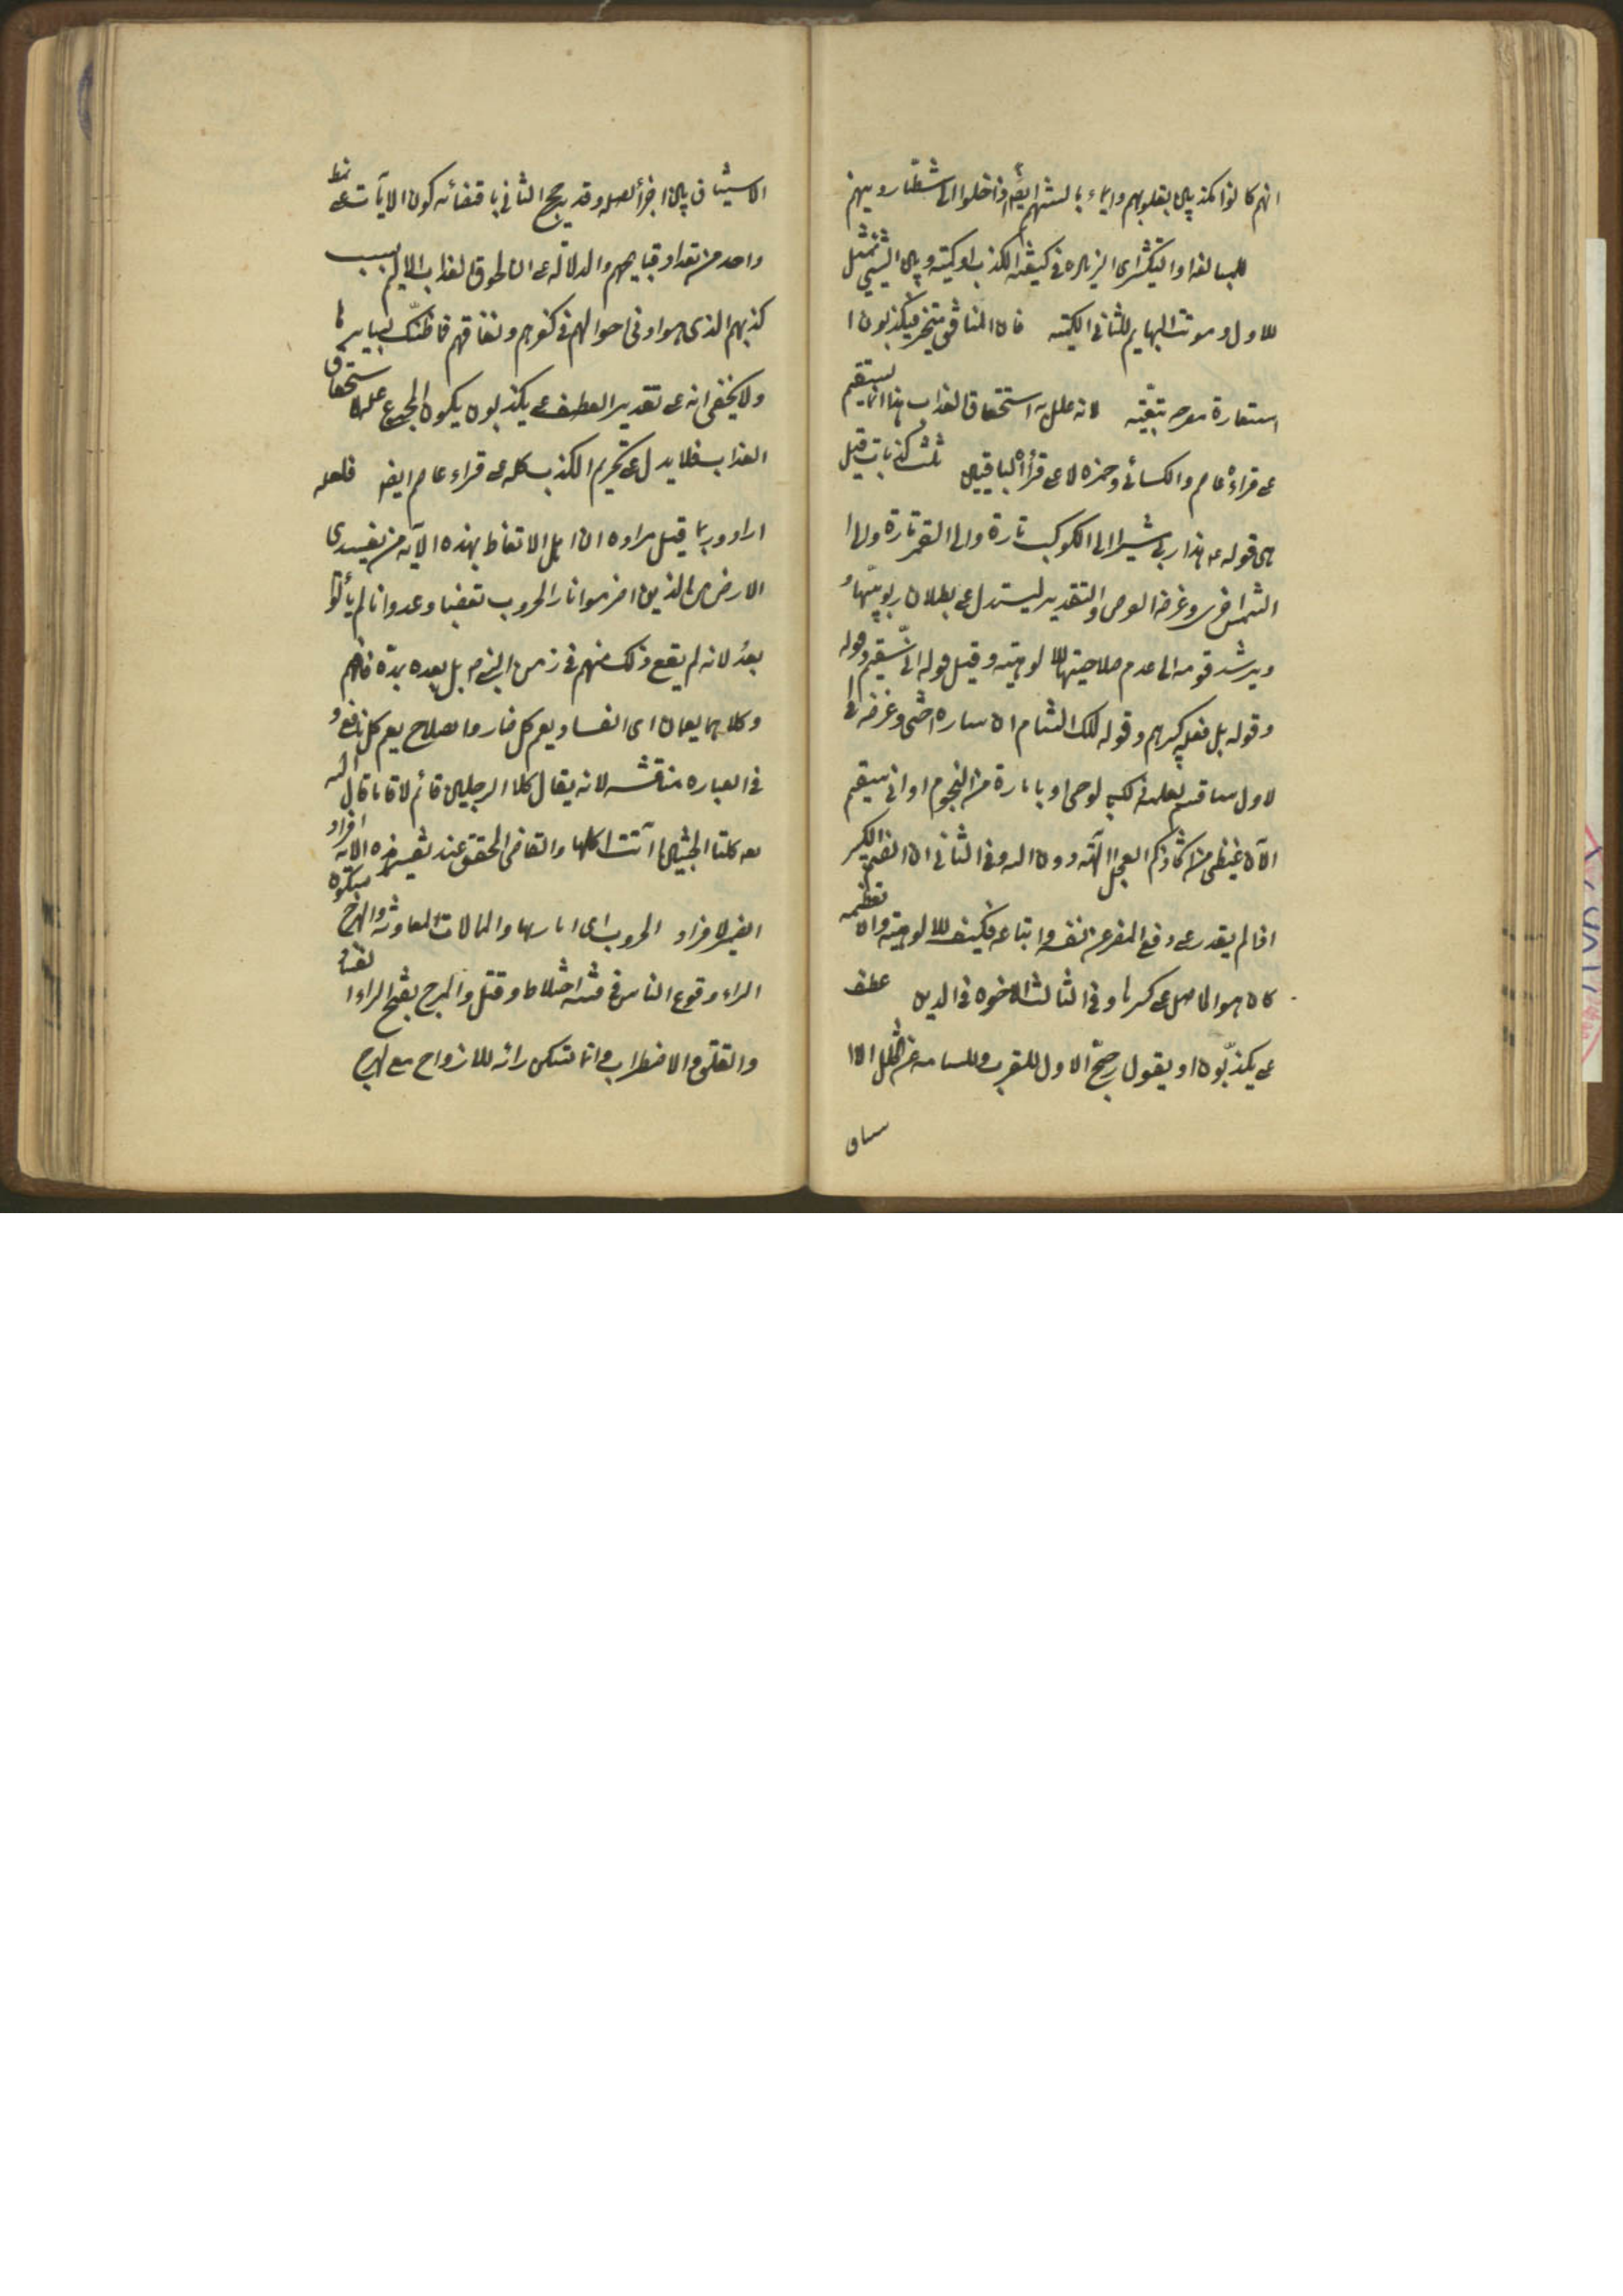 انهم كانوا مكذبين بقلوبهم وايماء بالسنتهم ايضا اذا خلوا الى شطار دينهم
للمبالغة او التكثير اى الزيادة فى كيفية الكذب او كميته وبين الشىء تمثيل
للاول وموتت البهايم للثانى الكمية فان المنافق متحير فيكذبون ا
استعارة تبعية لانه علل به استحقاق العذاب هذا انما يستقيم
على قراءة عاصم والكسائى وحمزة لا على قراءة الباقين ثلث كذبات قيل
هى قوله هذا ربى مشيرا الى الكوكب تارة والى القمر تارة والى ا
الشمس اخرى وغرضه الفرض والتقدير ليستدل على بطلان ربوبيتها و
ويرشد قومه الى عدم صلاحيتها للالوهية وقيل قوله انى سقيم وقوله
وقوله بل فعله كبيرهم وقوله لملك الشام ان ساره اختى وغرضه فى
الاول ساسقم بعلمه ذلك بوحى او بامارة من النجوم او انى سقيم
الآن لغيظى من اتخاذكم العجل آلهة دون الله وفى الثانى ان الصنم الكبير
اذا لم يقدر على دفع المضرة عن نفسه واتباعه فكيف للالوهية وان تعظيمه
كان هو الحامل على كسرها وفى الثالث الاخوة فى الدين عطف
على يكذبون او يقول رجح الاول للقرب وللسلامة عن تخلل الا
ستيناف
الاستيناف بين اجزاء الصلة وقد يرجح الثانى باقتضائه كون الآيات على نمط
واحد من تعداد قبايحهم والدلالة على ان لحوق العذاب الاليم بسبب
كذبهم الذى هو ادنى احوالهم فى كفرهم ونفاقهم فما ظنك بسايرها
ولا يخفى انه على تقدير العطف على يكذبون يكون المجموع علة لاستحقاق
العذاب فلا يدل على تحريم الكذب كله على قراءة عاصم ايضا فلعله
اراد وربما قيل مراده ان اهل الاتعاظ بهذه الآية من مفسدى
الارض من الذين اضرموا نار الحروب تعصبا وعدوانا لم يأتوا
بعد لانه لم يقع ذلك منهم فى زمن النبى م بل بعده بمدة فافهم
وكلاهما يعمان اى الفساد يعم كل ضار والصلاح يعم كل نافع و
فى العبارة مناقشة لانه يقال كلا الرجلين قائم لا قائمان قال الله
تعه كلتا الجنتين آتت اكلها والقاضى المحقق عند تفسير هذه الآية افراد
الضمير لافراد الحروب اى اثارتها والمحالات المعاونة والهرج بسكون
الراء وقوع الناس فى فتنة واختلاط وقتل والمرج بفتح الراء الفساد
والقلق والاضطراب وانما تسكن رائه للازدواج مع الهرج